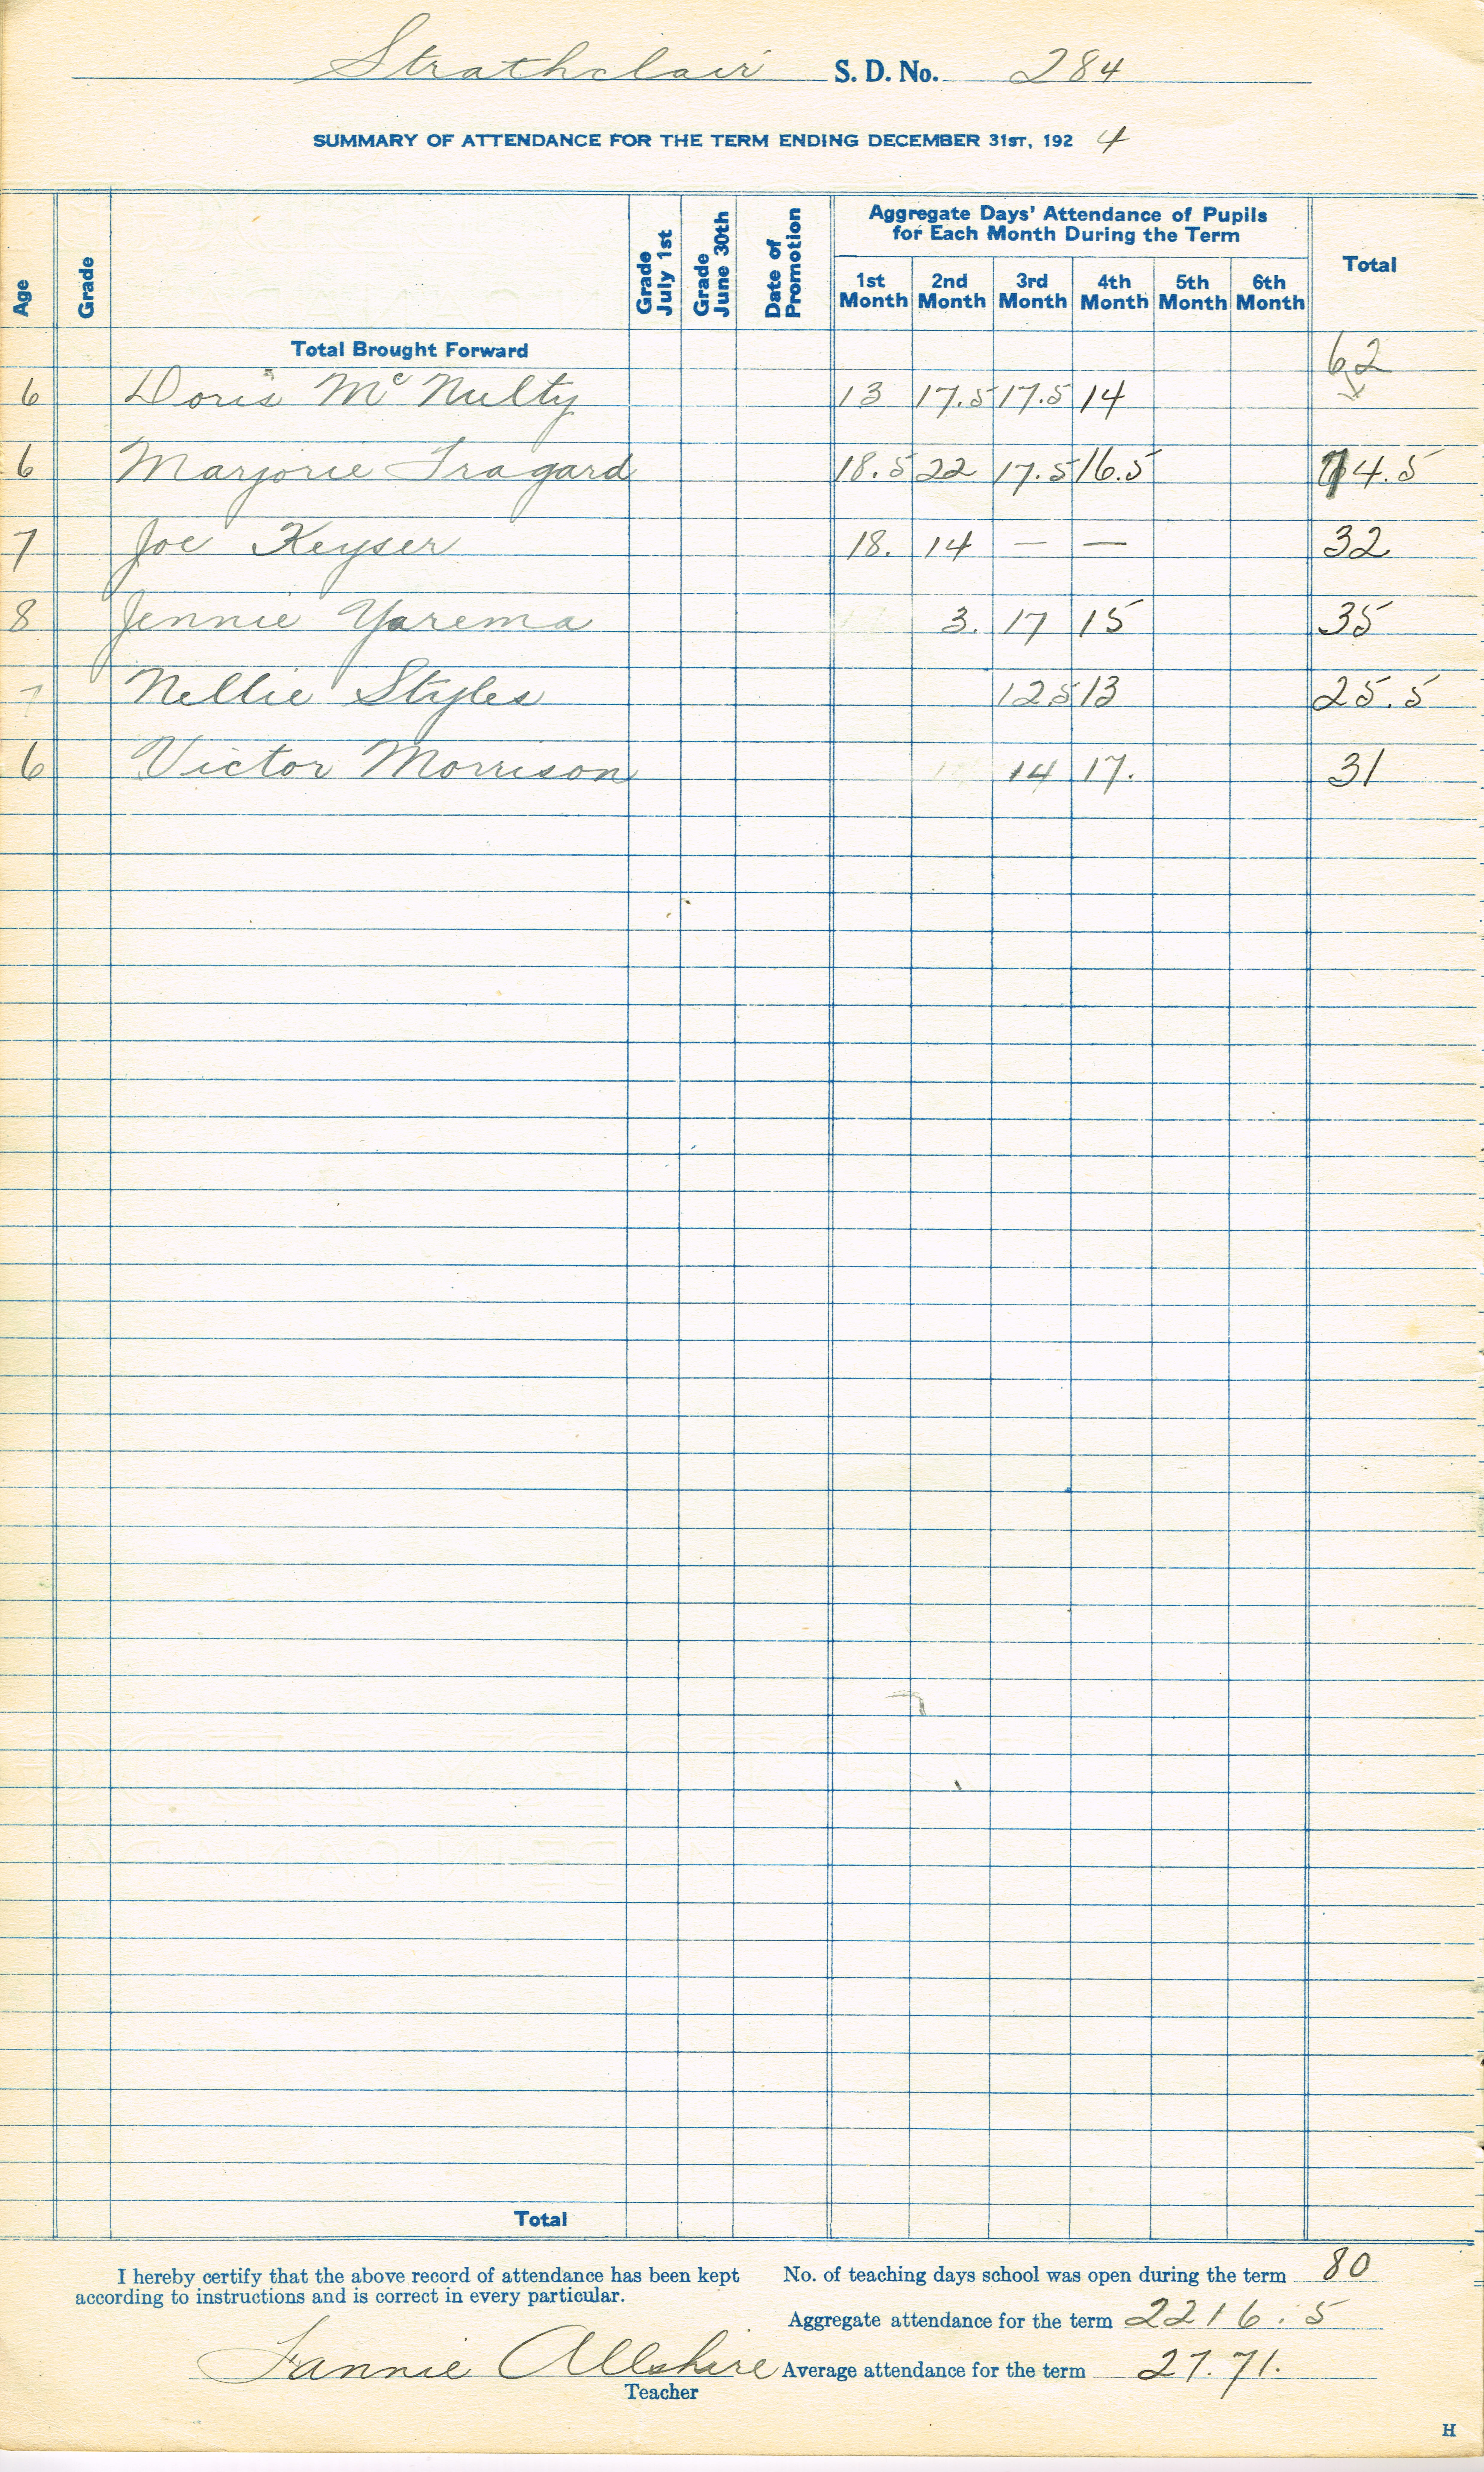 Strathclair S. D. No. 284
SUMMARY OF ATTENDANCE FOR THE TERM ENDING DECEMBER 31ST, 192 4
Age Grade Grade July 1st Grade June 30th Date of Promotion Aggregate Days' Attendance of Pupils for Each Month During the Term Total
1st Month 2nd Month 3rd Month 4th Month 5th Month 6th Month
Total Brought Forward 62
6 Doris Mc Nulty 13 17.5 17.5 14
6 Marjorie Tragard 18.5 22 17.5 16.5 74.5
7 Joe Keyser 18. 14 — — 32
8 Jennie Yarema 3. 17 15 35
7 Nellie Styles 12.5 13 25.5
6 Victor Morrison 14 17. 31
Total
I hereby certify that the above record of attendance has been kept
according to instructions and is correct in every particular.
No. of teaching days school was open during the term 80
Aggregate attendance for the term 2216.5
Fannie Allshire
Teacher
Average attendance for the term 27.71.
H